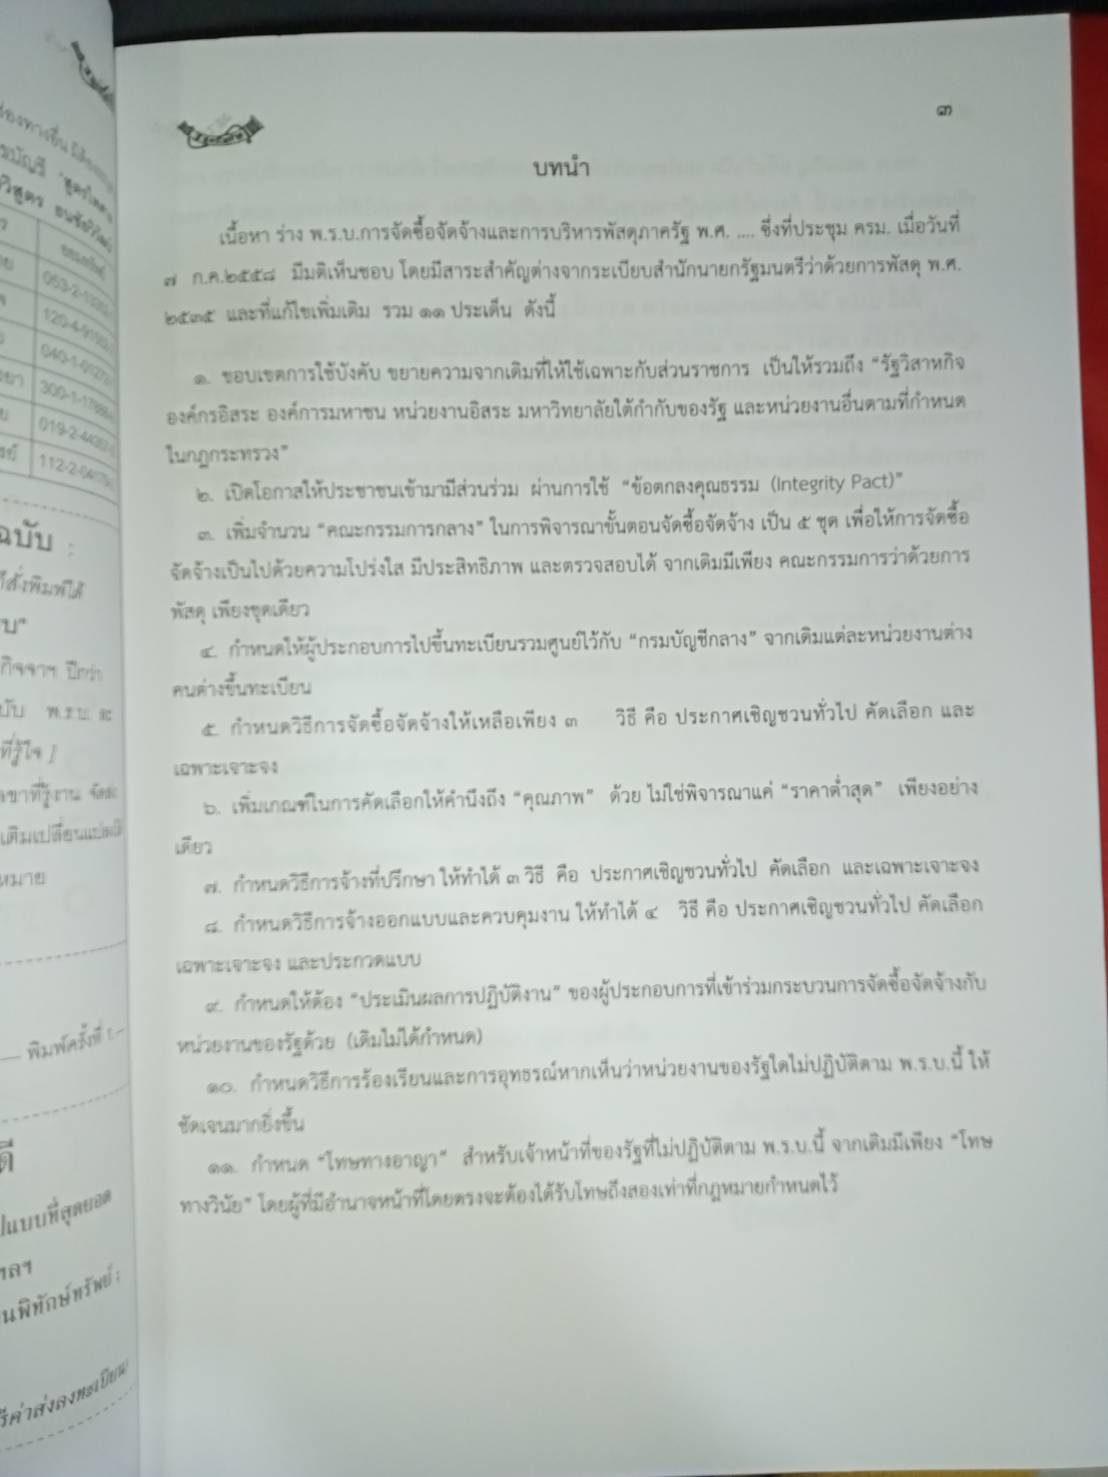 ๓
บทนำ
เนื้อหา ร่าง พ.ร.บ.การจัดซื้อจัดจ้างและการบริหารพัสดุภาครัฐ พ.ศ. .... ซึ่งที่ประชุม ครม. เมื่อวันที่
๗ ก.ค.๒๕๕๘ มีมติเห็นชอบ โดยมีสาระสำคัญต่างจากระเบียบสำนักนายกรัฐมนตรีว่าด้วยการพัสดุ พ.ศ.
๒๕๓๕ และที่แก้ไขเพิ่มเติม รวม ๑๑ ประเด็น ดังนี้
๑. ขอบเขตการใช้บังคับ ขยายความจากเดิมที่ให้ใช้เฉพาะกับส่วนราชการ เป็นให้รวมถึง “รัฐวิสาหกิจ
องค์กรอิสระ องค์การมหาชน หน่วยงานอิสระ มหาวิทยาลัยใต้กำกับของรัฐ และหน่วยงานอื่นตามที่กำหนด
ในกฎกระทรวง”
๒. เปิดโอกาสให้ประชาชนเข้ามามีส่วนร่วม ผ่านการใช้ “ข้อตกลงคุณธรรม (Integrity Pact)”
๓. เพิ่มจำนวน “คณะกรรมการกลาง” ในการพิจารณาขั้นตอนจัดซื้อจัดจ้าง เป็น ๕ ชุด เพื่อให้การจัดซื้อ
จัดจ้างเป็นไปด้วยความโปร่งใส มีประสิทธิภาพ และตรวจสอบได้ จากเดิมมีเพียง คณะกรรมการว่าด้วยการ
พัสดุ เพียงชุดเดียว
๔. กำหนดให้ผู้ประกอบการไปขึ้นทะเบียนรวมศูนย์ไว้กับ “กรมบัญชีกลาง” จากเดิมแต่ละหน่วยงานต่าง
คนต่างขึ้นทะเบียน
๕. กำหนดวิธีการจัดซื้อจัดจ้างให้เหลือเพียง ๓ วิธี คือ ประกาศเชิญชวนทั่วไป คัดเลือก และ
เฉพาะเจาะจง
๖. เพิ่มเกณฑ์ในการคัดเลือกให้คำนึงถึง “คุณภาพ” ด้วย ไม่ใช่พิจารณาแค่ “ราคาต่ำสุด” เพียงอย่าง
เดียว
๗. กำหนดวิธีการจ้างที่ปรึกษา ให้ทำได้ ๓ วิธี คือ ประกาศเชิญชวนทั่วไป คัดเลือก และเฉพาะเจาะจง
๘. กำหนดวิธีการจ้างออกแบบและควบคุมงาน ให้ทำได้ ๔ วิธี คือ ประกาศเชิญชวนทั่วไป คัดเลือก
เฉพาะเจาะจง และประกวดแบบ
๙. กำหนดให้ต้อง “ประเมินผลการปฏิบัติงาน” ของผู้ประกอบการที่เข้าร่วมกระบวนการจัดซื้อจัดจ้างกับ
หน่วยงานของรัฐด้วย (เดิมไม่ได้กำหนด)
๑๐. กำหนดวิธีการร้องเรียนและการอุทธรณ์หากเห็นว่าหน่วยงานของรัฐใดไม่ปฏิบัติตาม พ.ร.บ.นี้ ให้
ชัดเจนมากยิ่งขึ้น
๑๑. กำหนด “โทษทางอาญา” สำหรับเจ้าหน้าที่ของรัฐที่ไม่ปฏิบัติตาม พ.ร.บ.นี้ จากเดิมมีเพียง “โทษ
ทางวินัย” โดยผู้ที่มีอำนาจหน้าที่โดยตรงจะต้องได้รับโทษถึงสองเท่าที่กฎหมายกำหนดไว้
ฉบับ :
สั่งพิมพ์ได้
ปีกว่า
พ.ร.บ.
ที่รู้ใจ ]
ที่รู้งาน
พิมพ์ครั้งที่
แบบที่สุดยอด
พิทักษ์ทรัพย์ :
ค่าส่งลงทะเบียน